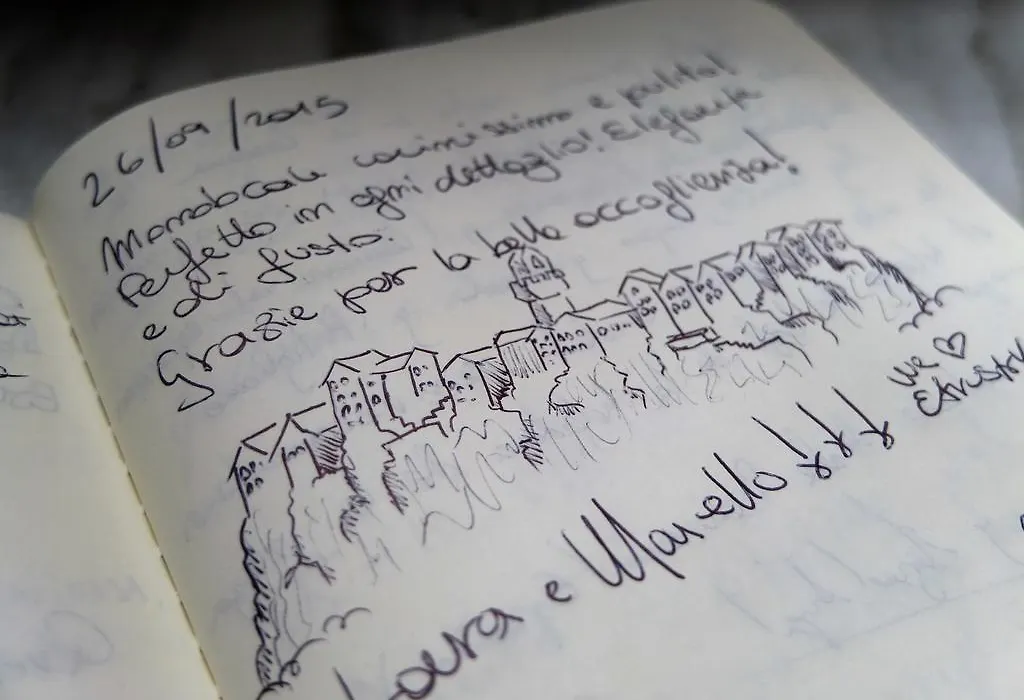 26/09/2015
Monolocale carinissimo e pulito!
Perfetto in ogni dettaglio! Elegante
e di gusto.
Grazie per la bella accoglienza!
We ♡
Laura e Marcello